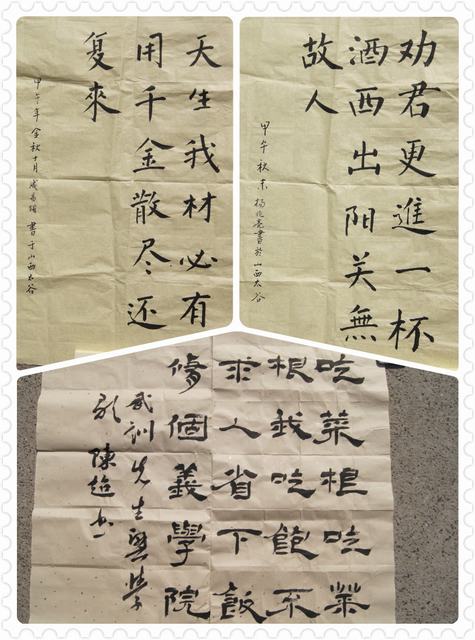 天生我材必有
用千金散尽还
复來
甲午年金秋十月 書于山西太谷
劝君更進一杯
酒西出阳关無
故人
甲午秋末 楊兆亮書於山西太谷
吃菜根吃菜
根我吃飽不
求人省下飯
脩個義學院
武训先生興学
歌 陳